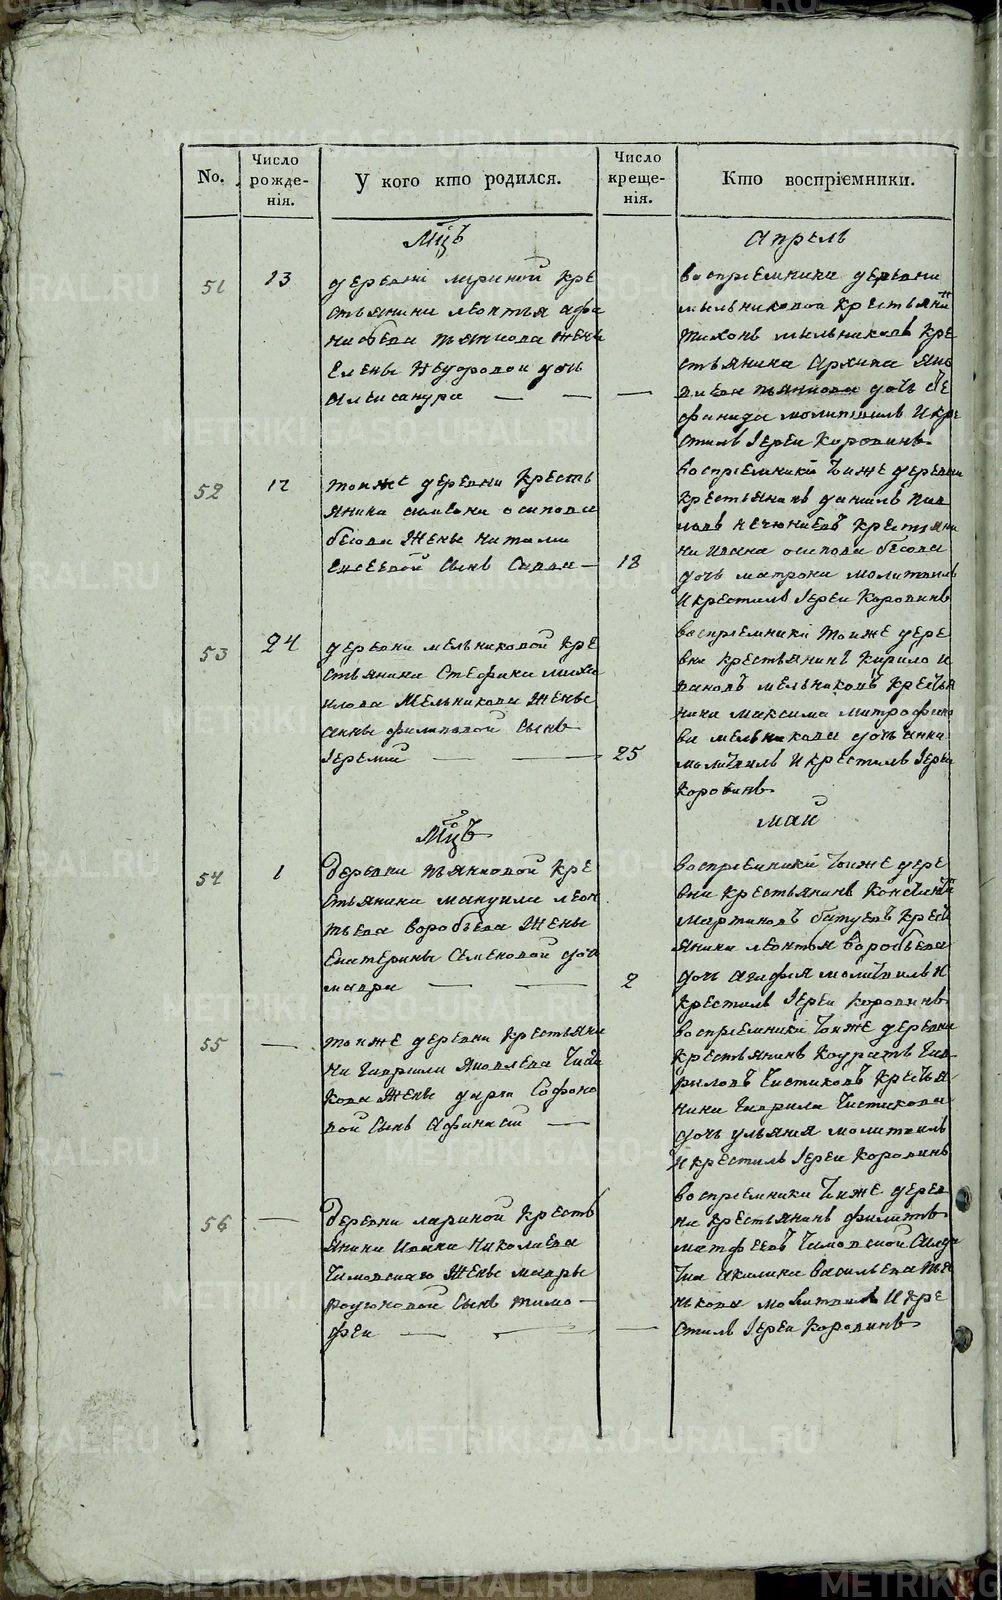 No.
Число рожде- нія.
У кого кто родился.
Число креще- нія.
Кто воспріемники.
Мцъ
Апрель
51
13
деревни Лариной кре
стьянина Леонтья Афа
насьева Пьянкова жены
Елены Федоровой дочь
Александра — — —
воспріемники деревни
Мыльниковой крестьянинъ
Тихонъ Мыльниковъ кре
стьянина Архипа Яко
влева Пьянкова дочь Сте
фанида молитвилъ и кре
стилъ Іерей Коровинъ
52
12
тойже деревни кресть
янина Симеона Осипова
Бесова жены Наталіи
Елсеевой сынъ Савва —
18
воспріемники тойже деревни
крестьянинъ Даниилъ Пав
ловъ крестьяни
на Ивана Осипова Бесова
дочь Матрона молитвилъ
и крестилъ Іерей Коровинъ
53
24
деревни Мельниковой кре
стьянина Стефана Миха
илова Мельникова жены
Анны Филиповой сынъ
Іеремій — —
25
воспріемники тойже дере
вни крестьянинъ Кирило И
вановъ Мельниковъ крестья
нина Максима Митрофано
ва Мельникова дочь Анна
молитвилъ и крестилъ Іерей
Коровинъ
Мцъ
Май
54
1
Деревни Пьянковой кре
стьянина Мануила Леон
тьева Воробьева жены
Екатерины Семеновой дочь
Мавра — —
2
воспріемники тойже дере
вни крестьянинъ Константинъ
Мартиновъ Батуевъ крест
янина Леонтья Воробьева
дочь Агафья молитвилъ и
крестилъ Іерей Коровинъ
55
—
тойже деревни крестьяни
на Гаврила Яковлева Чисти
кова жены Дарьи Софоно
вой сынъ Афанасій —
воспріемники тойже деревни
крестьянинъ Кодратъ Гав
риловъ Чистиковъ крестья
нина Гаврила Чистикова
дочь Ульяния молитвилъ
и крестилъ Іерей Коровинъ
56
—
Деревни Лариной кресть
янина Ивана Николаева
жены Мавры
Родіоновой сынъ Тимо-
фей — — —
воспріемники тойже дерев
ни крестьянинъ Филипъ
Матфеевъ
Акилина Васильева Пья
нкова молитвилъ и кре
стилъ Іерей Коровинъ
METRIKI.GASO-URAL.RU